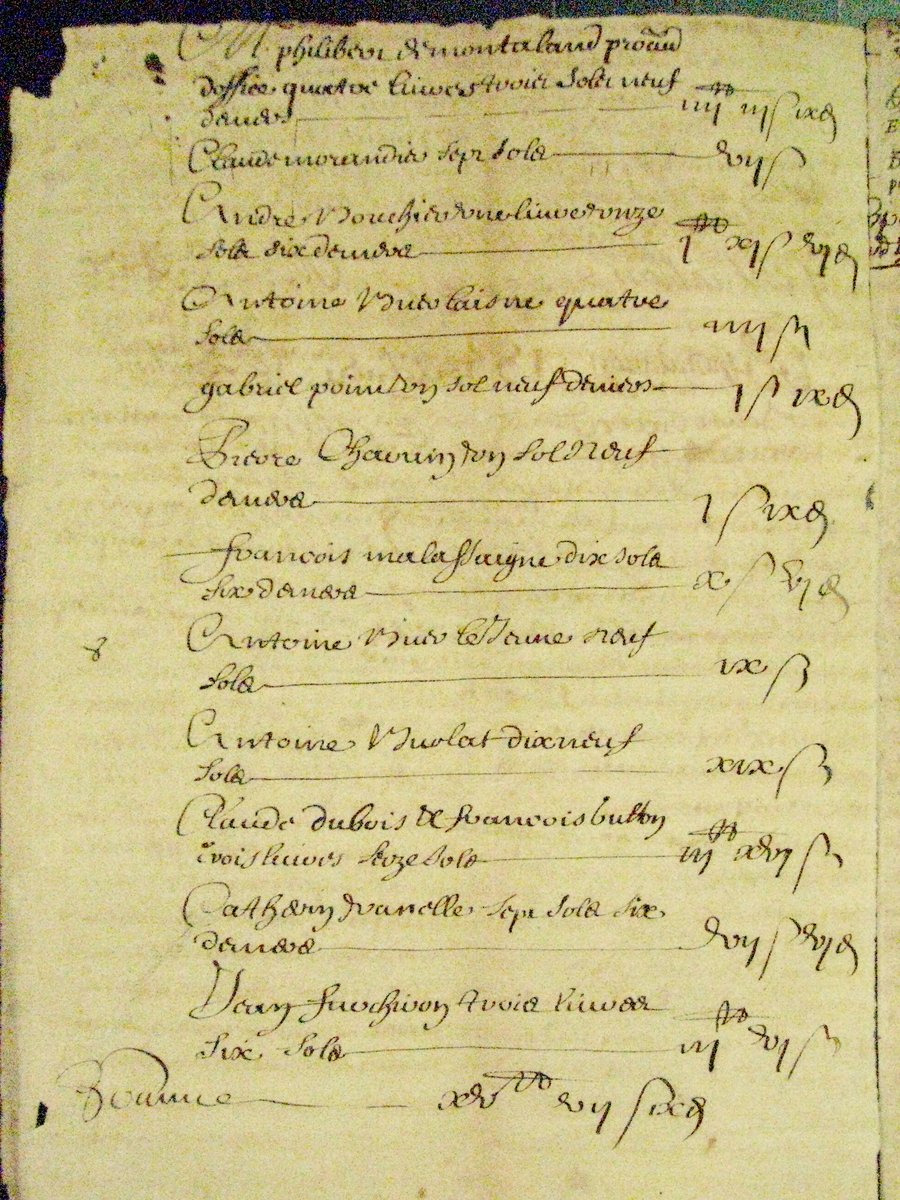 Mr philibert demontaland procu
doffice quatre livres trois solz neuf
deniers iiij ## iij s ix d
Claude morandin sept solz vij s
Andre une livre unze
solz six deniers j ## xj s vj d
Antoine laisne quatre
solz iiij s
gabriel point un sol neuf deniers j s ix d
Pierre Chauvin un sol neuf
deniers j s ix d
francois malassaigne dix solz
six deniers x s vj d
8 Antoine le Jeune neuf
solz ix s
Antoine dixneuf
solz xix s
Claude dubois & francois button
trois livres seze solz iij ## xvj s
Catherin sept solz six
deniers vij s vj d
Jean trois livres
six solz iij ## vj s
Somme xv ## vij s ix d